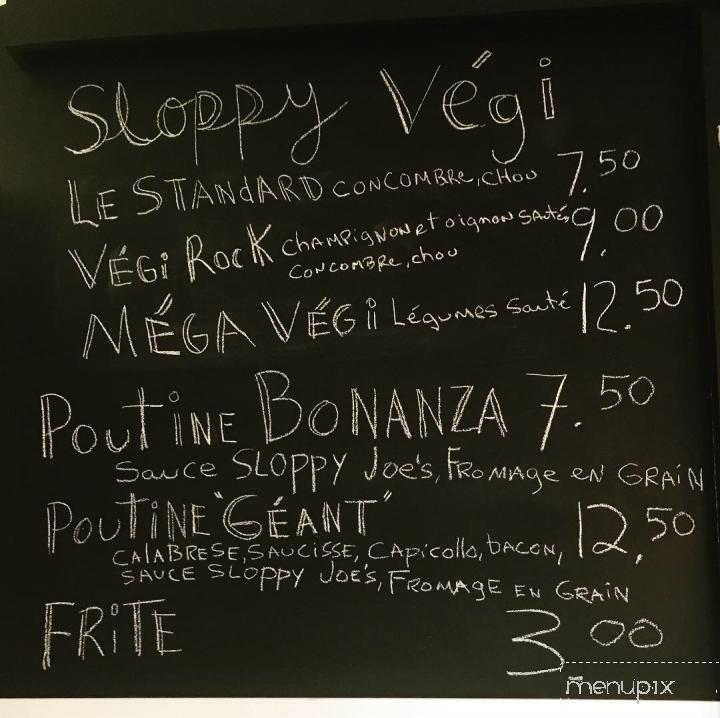 Sloppy Végi
LE STANdARD CONCOMBRe, CHOU 7.50
VÉGi RocK CHAMPiGNON et oignon sautés 9.00
CONCOMBRe, chou
MÉGA VÉGii Légumes sauté 12.50
PoutiNE BoNANZA 7.50
Sauce SLOPPY Joe's, FROMAGE eN GRAiN
POUTiNE "GÉANT" 12,50
CALABRESE, SAUCISSE, CAPicollo, bACON,
SAUCE SLOPPY JOE'S, FROMAGE EN GRAiN
FRiTE 3 00
menupix